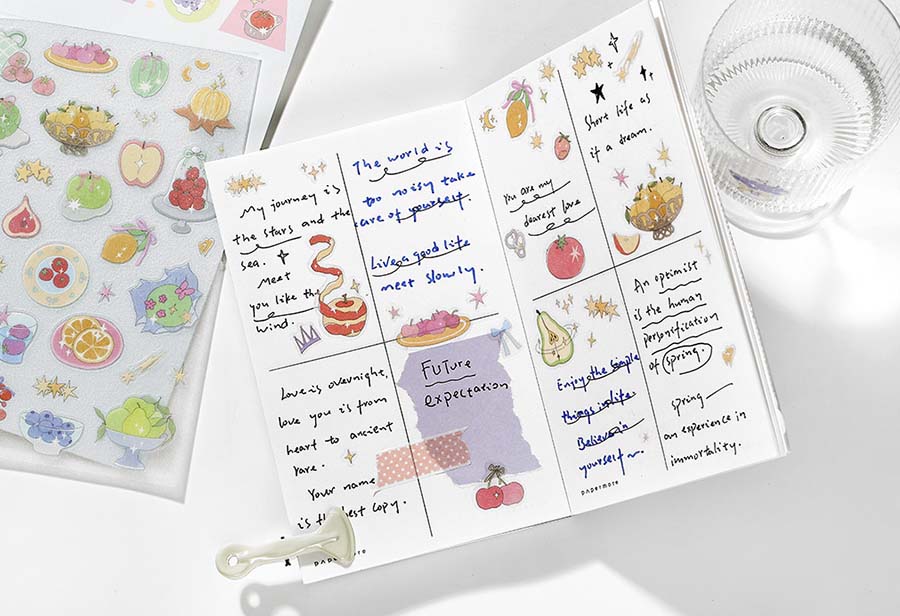 My journey is
the stars and the
sea.
Meet
you like the
wind.
The world is
too noisy take
care of yourself.
Live a good life
meet slowly.
Love is overnight,
love you is from
heart to ancient
rare.
Your name
is the best copy.
Future
expectation
papermore
You are my
dearest love
Short life as
if a dream.
Enjoy the simple
things in life
Believe in
yourself
papermore
An optimist
is the human
personification
of spring.
spring
an experience in
immortality.